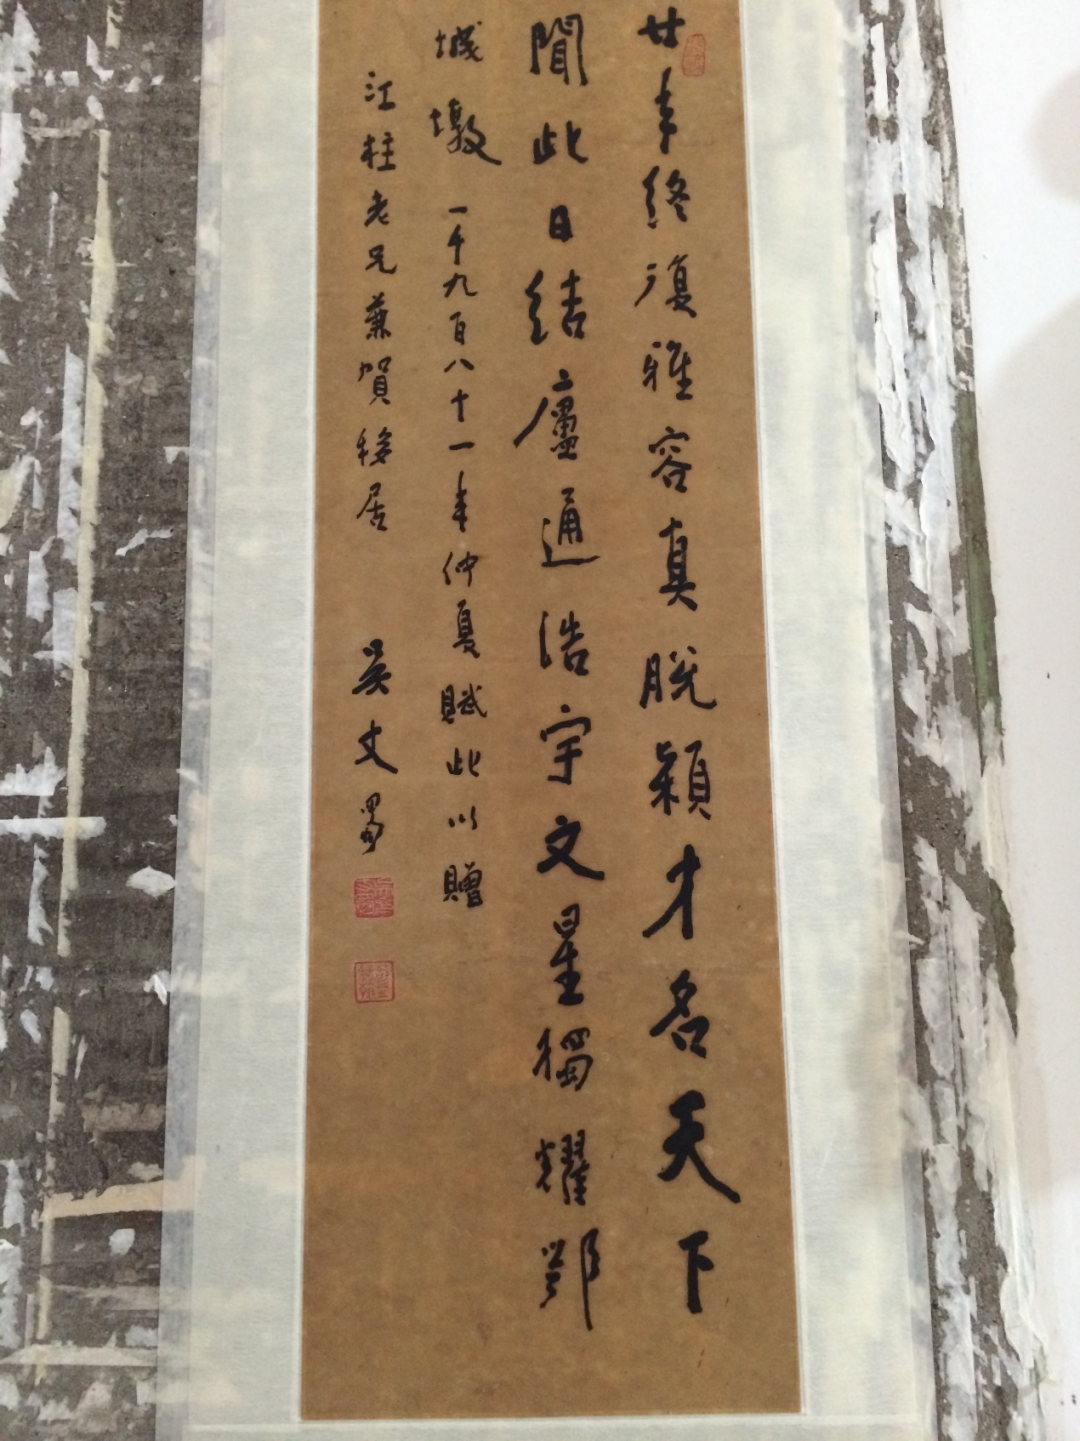 廿年終復雅容真脫穎才名天下
聞此日結廬通浩宇文星獨耀鄂
城墩 一千九百八十一年仲夏賦此以贈
江柱老兄兼賀移居 吴丈蜀